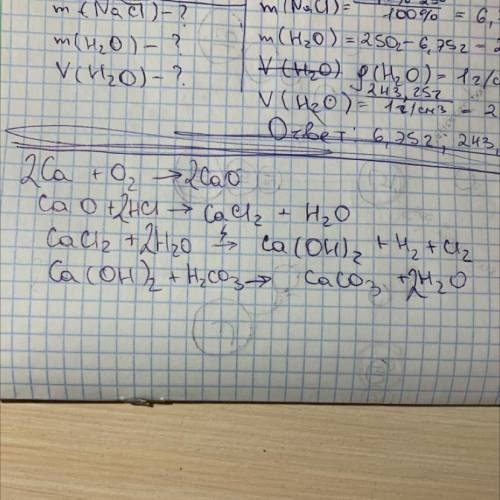 m(NaCl) - ?
m(H₂O) - ?
V(H₂O) - ?
m(NaCl) =
100% = 6,
m(H₂O) = 250г - 6,75г = 2
V(H₂O) ρ(H₂O) = 1г/с
243,25г
V(H₂O) = 1г/см3 = 2
Ответ: 6,75г, 243,
2Ca + O₂ → 2CaO
CaO + 2HCl → CaCl₂ + H₂O
CaCl₂ + 2H₂O → Ca(OH)₂ + H₂ + Cl₂
Ca(OH)₂ + H₂CO₃ → CaCO₃ + 2H₂O